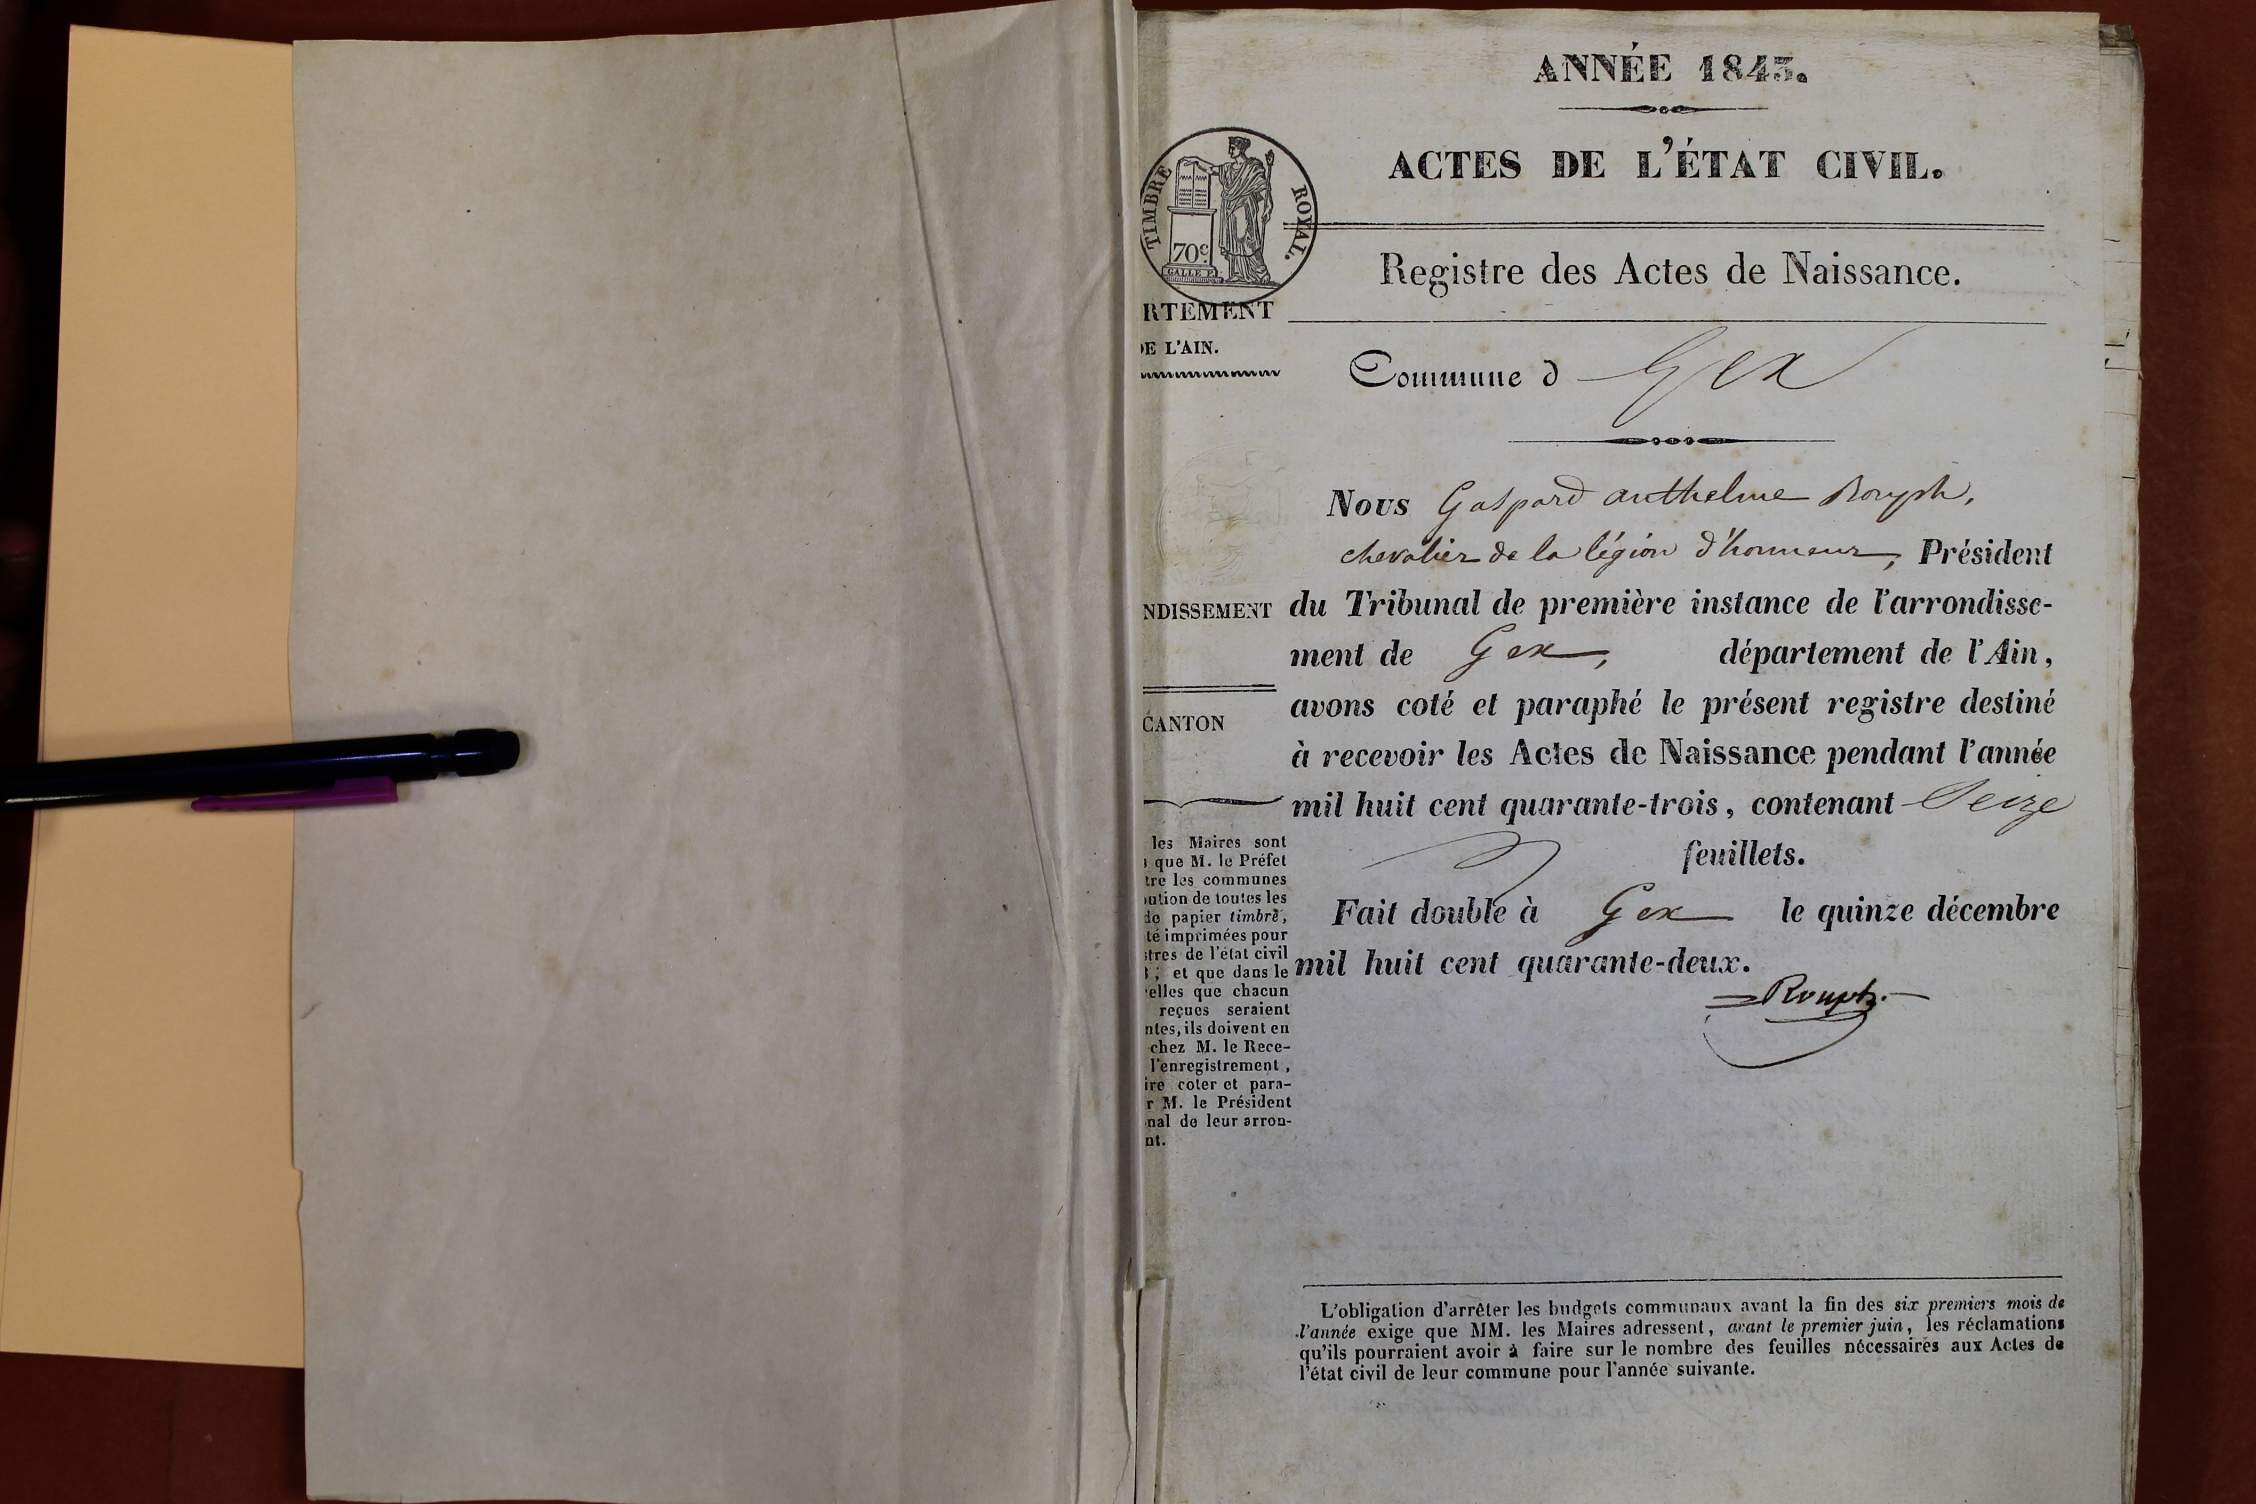 ANNÉE 1843.
ACTES DE L'ÉTAT CIVIL.
TIMBRE ROYAL.
70c.
GALLE F.
Registre des Actes de Naissance.
RTEMENT
DE L'AIN.
Commune d Gex
Nous Gaspard anthelme Rouph,
chevalier de la légion d'honneur, Président
NDISSEMENT
du Tribunal de première instance de l'arrondisse-
ment de Gex, département de l'Ain,
avons coté et paraphé le présent registre destiné
CANTON
à recevoir les Actes de Naissance pendant l'année
mil huit cent quarante-trois, contenant Seize
feuillets.
Fait double à Gex le quinze décembre
mil huit cent quarante-deux.
Rouph
les Maires sont
que M. le Préfet
tre les communes
ution de toutes les
de papier timbré,
té imprimées pour
stres de l'état civil
; et que dans le
elles que chacun
reçues seraient
ntes, ils doivent en
chez M. le Rece-
l'enregistrement,
ire coter et para-
r M. le Président
nal de leur arron-
nt.
L'obligation d'arrêter les budgets communaux avant la fin des six premiers mois de
l'année exige que MM. les Maires adressent, avant le premier juin, les réclamations
qu'ils pourraient avoir à faire sur le nombre des feuilles nécessaires aux Actes de
l'état civil de leur commune pour l'année suivante.